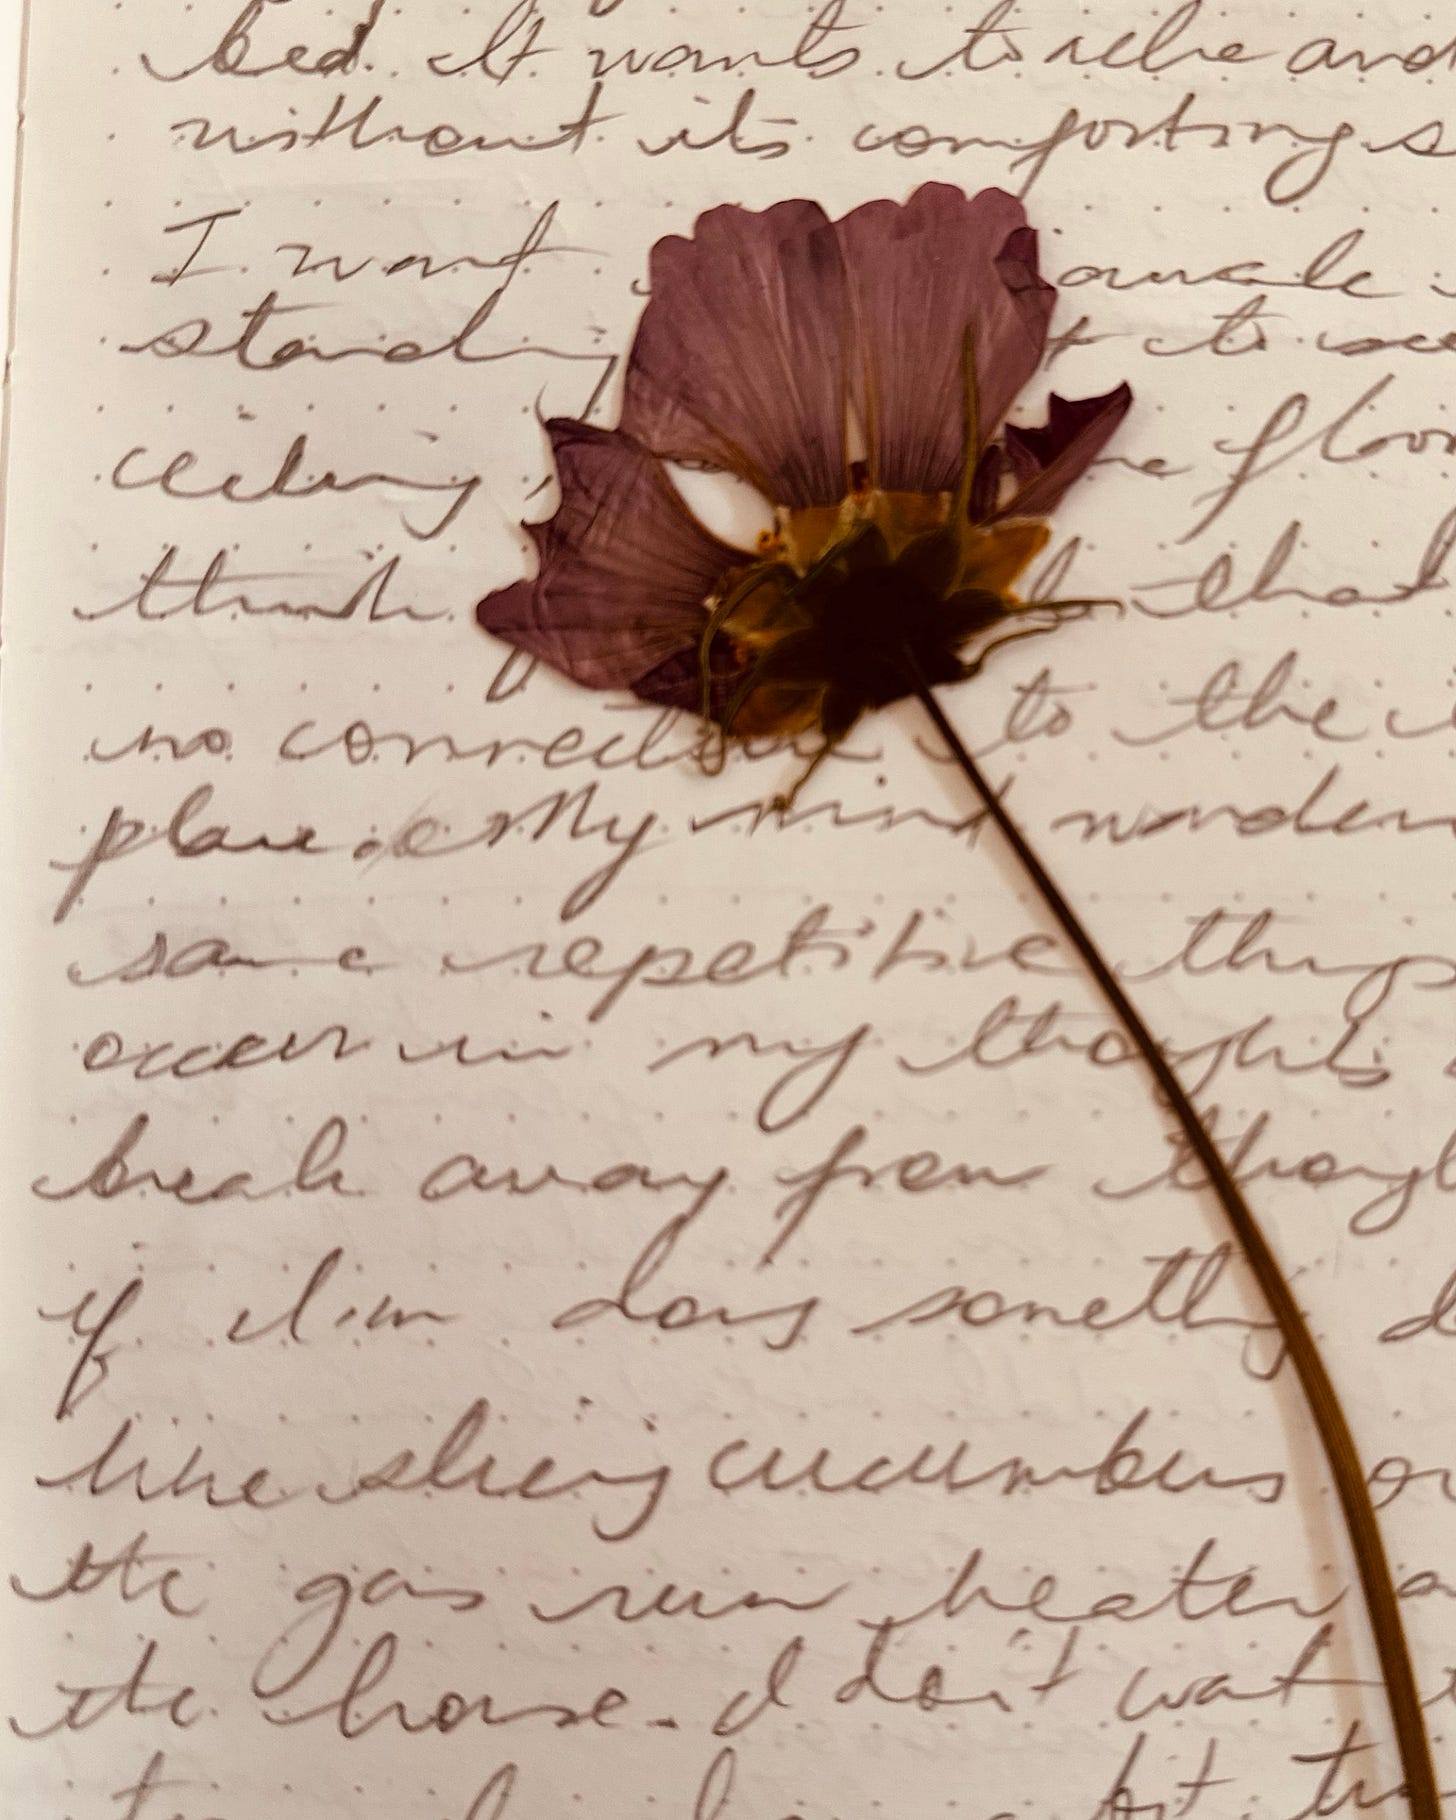 bed. It wants to relie and
without its comforting s
I want awake
standing to see
ceiling, floor
think that
no connection to the
place. My mind wander
same repetitive things
occur in my thoughts
break away from though
if I'm doing something d
like slicing cucumbers or
the gas run heater a
the house. I don't want
bit